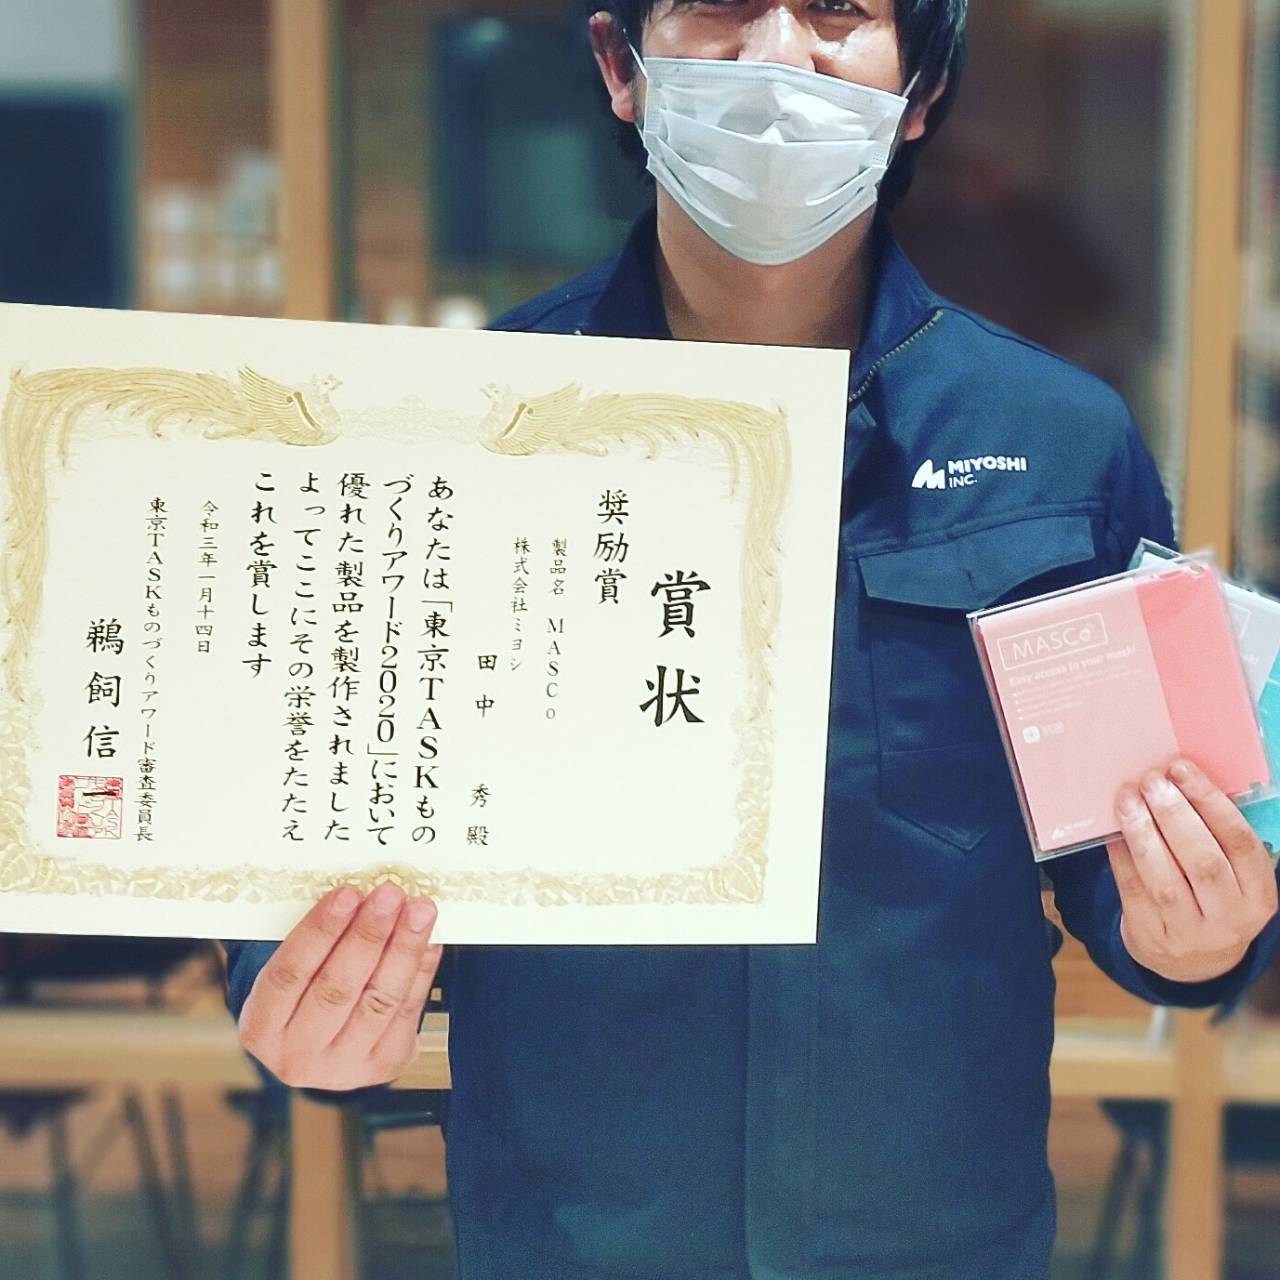 賞状
奨励賞
製品名 MASCo
株式会社ミヨシ
田中 秀 殿
あなたは「東京TASKもの
づくりアワード2020」において
優れた製品を製作されました
よってここにその栄誉をたたえ
これを賞します
令和三年一月十四日
東京TASKものづくりアワード審査委員長
鵜飼信一
MIYOSHI
INC.
MASCo
Easy access to your mask!
抗菌